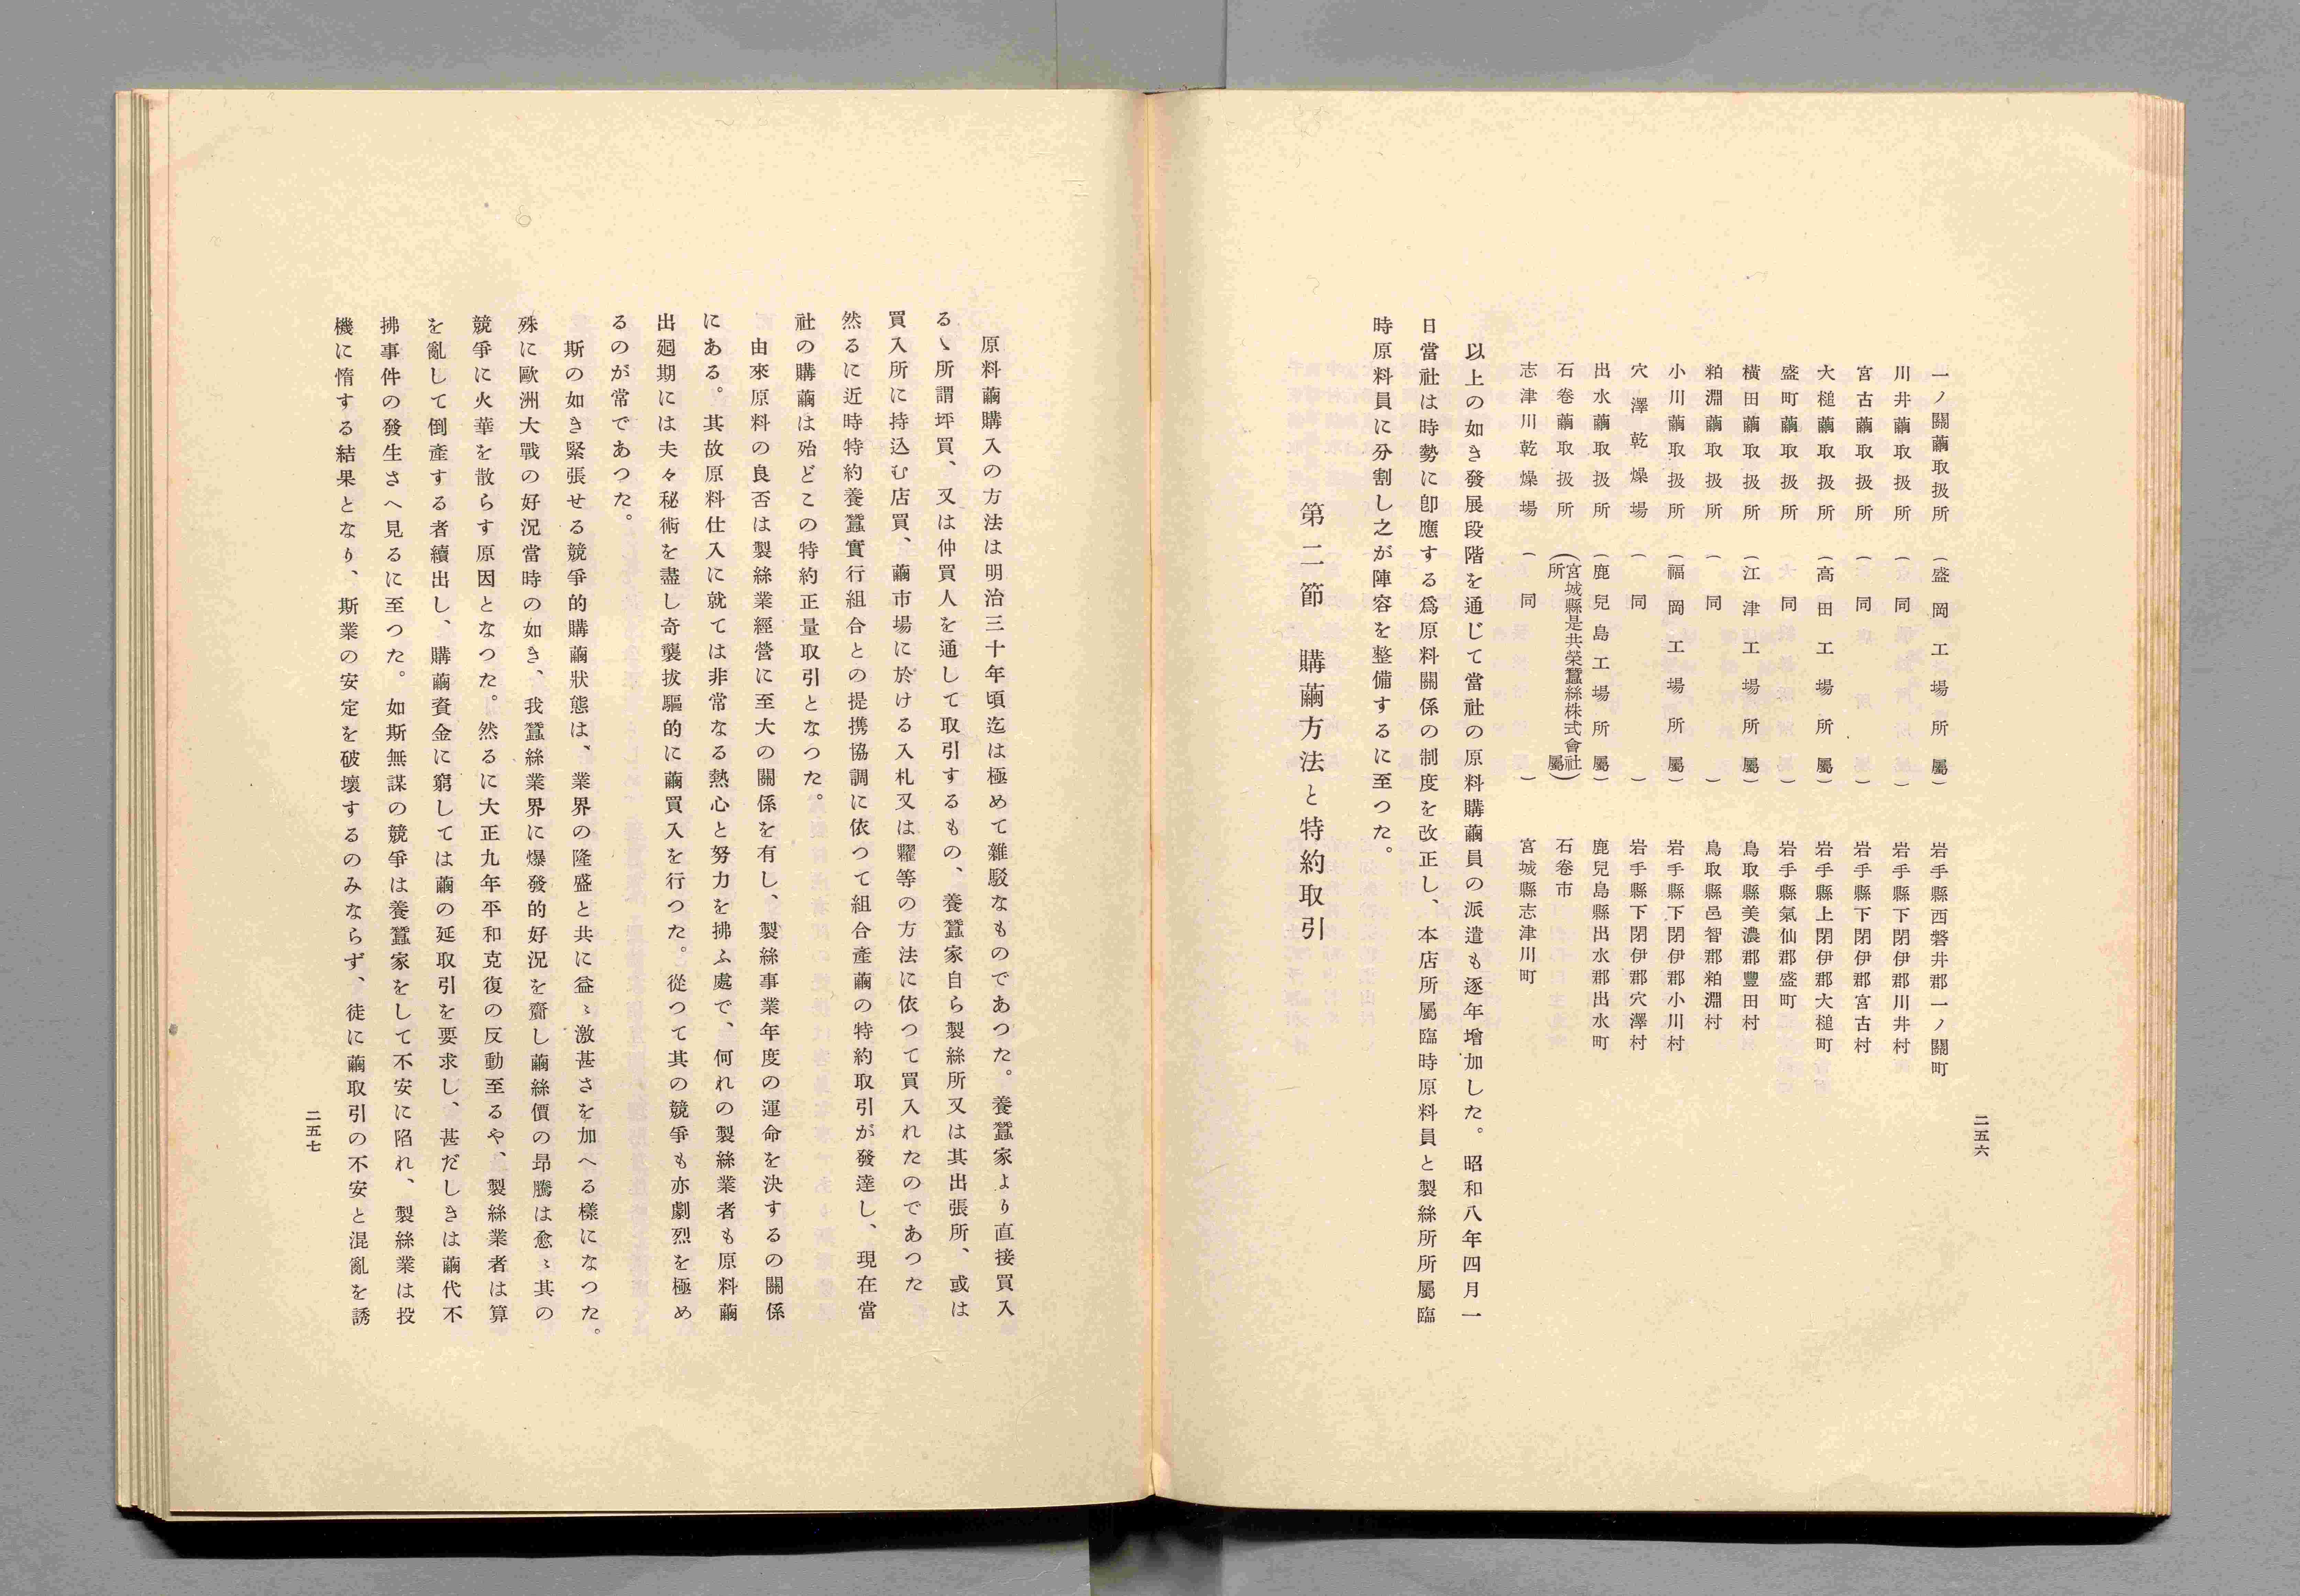 二五六
一ノ關繭取扱所 (盛岡工場所屬) 岩手縣西磐井郡一ノ關町
川井繭取扱所 (同) 岩手縣下閉伊郡川井村
宮古繭取扱所 (同) 岩手縣下閉伊郡宮古村
大槌繭取扱所 (高田工場所屬) 岩手縣上閉伊郡大槌町
盛町繭取扱所 (同) 岩手縣氣仙郡盛町
横田繭取扱所 (江津工場所屬) 鳥取縣美濃郡豐田村
粕淵繭取扱所 (同) 鳥取縣邑智郡粕淵村
小川繭取扱所 (福岡工場所屬) 岩手縣下閉伊郡小川村
穴澤乾燥場 (同) 岩手縣下閉伊郡穴澤村
出水繭取扱所 (鹿兒島工場所屬) 鹿兒島縣出水郡出水町
石卷繭取扱所 (宮城縣是共榮蠶絲株式會社所屬) 石卷市
志津川乾燥場 (同) 宮城縣志津川町
以上の如き發展段階を通じて當社の原料購繭員の派遣も逐年增加した。昭和八年四月一
日當社は時勢に卽應する爲原料關係の制度を改正し、本店所屬臨時原料員と製絲所所屬臨
時原料員に分割し之が陣容を整備するに至つた。
第二節 購繭方法と特約取引
原料繭購入の方法は明治三十年頃迄は極めて雜駁なものであつた。養蠶家より直接買入
るゝ所謂坪買、又は仲買人を通して取引するもの、養蠶家自ら製絲所又は其出張所、或は
買入所に持込む店買、繭市場に於ける入札又は糶等の方法に依つて買入れたのであつた
然るに近時特約養蠶實行組合との提携協調に依つて組合產繭の特約取引が發達し、現在當
社の購繭は殆どこの特約正量取引となつた。
由來原料の良否は製絲業經營に至大の關係を有し、製絲事業年度の運命を決するの關係
にある。其故原料仕入に就ては非常なる熱心と努力を拂ふ處で、何れの製絲業者も原料繭
出廻期には夫々秘術を盡し奇襲拔驅的に繭買入を行つた。從つて其の競爭も亦劇烈を極め
るのが常であつた。
斯の如き緊張せる競爭的購繭狀態は、業界の隆盛と共に益〻激甚さを加へる樣になつた。
殊に歐洲大戰の好況當時の如き、我蠶絲業界に爆發的好況を齎し繭絲價の昻騰は愈〻其の
競爭に火華を散らす原因となつた。然るに大正九年平和克復の反動至るや、製絲業者は算
を亂して倒產する者續出し、購繭資金に窮しては繭の延取引を要求し、甚だしきは繭代不
拂事件の發生さへ見るに至つた。如斯無謀の競爭は養蠶家をして不安に陷れ、製絲業は投
機に惰する結果となり、斯業の安定を破壞するのみならず、徒に繭取引の不安と混亂を誘
二五七